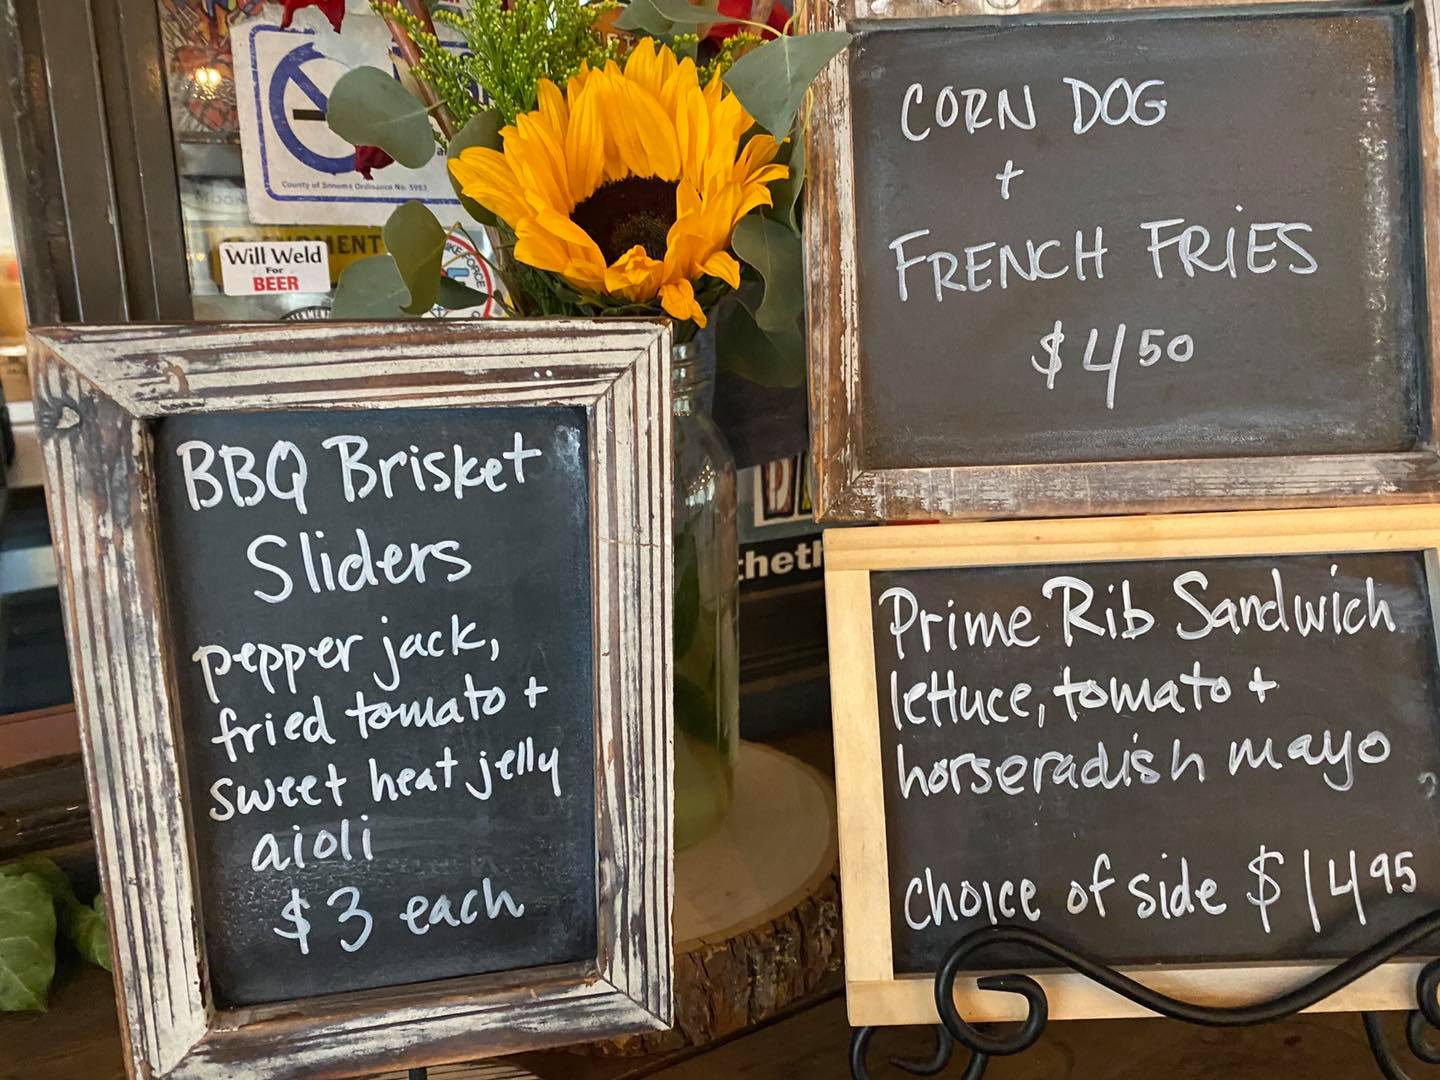 County of Sonoma Ordinance No. 5953
Will Weld
For
BEER
CORN DOG
+
FRENCH FRIES
$4.50
BBQ Brisket
Sliders
pepper jack,
fried tomato +
sweet heat jelly
aioli
$3 each
Prime Rib Sandwich
lettuce, tomato +
horseradish mayo
Choice of side $14 95